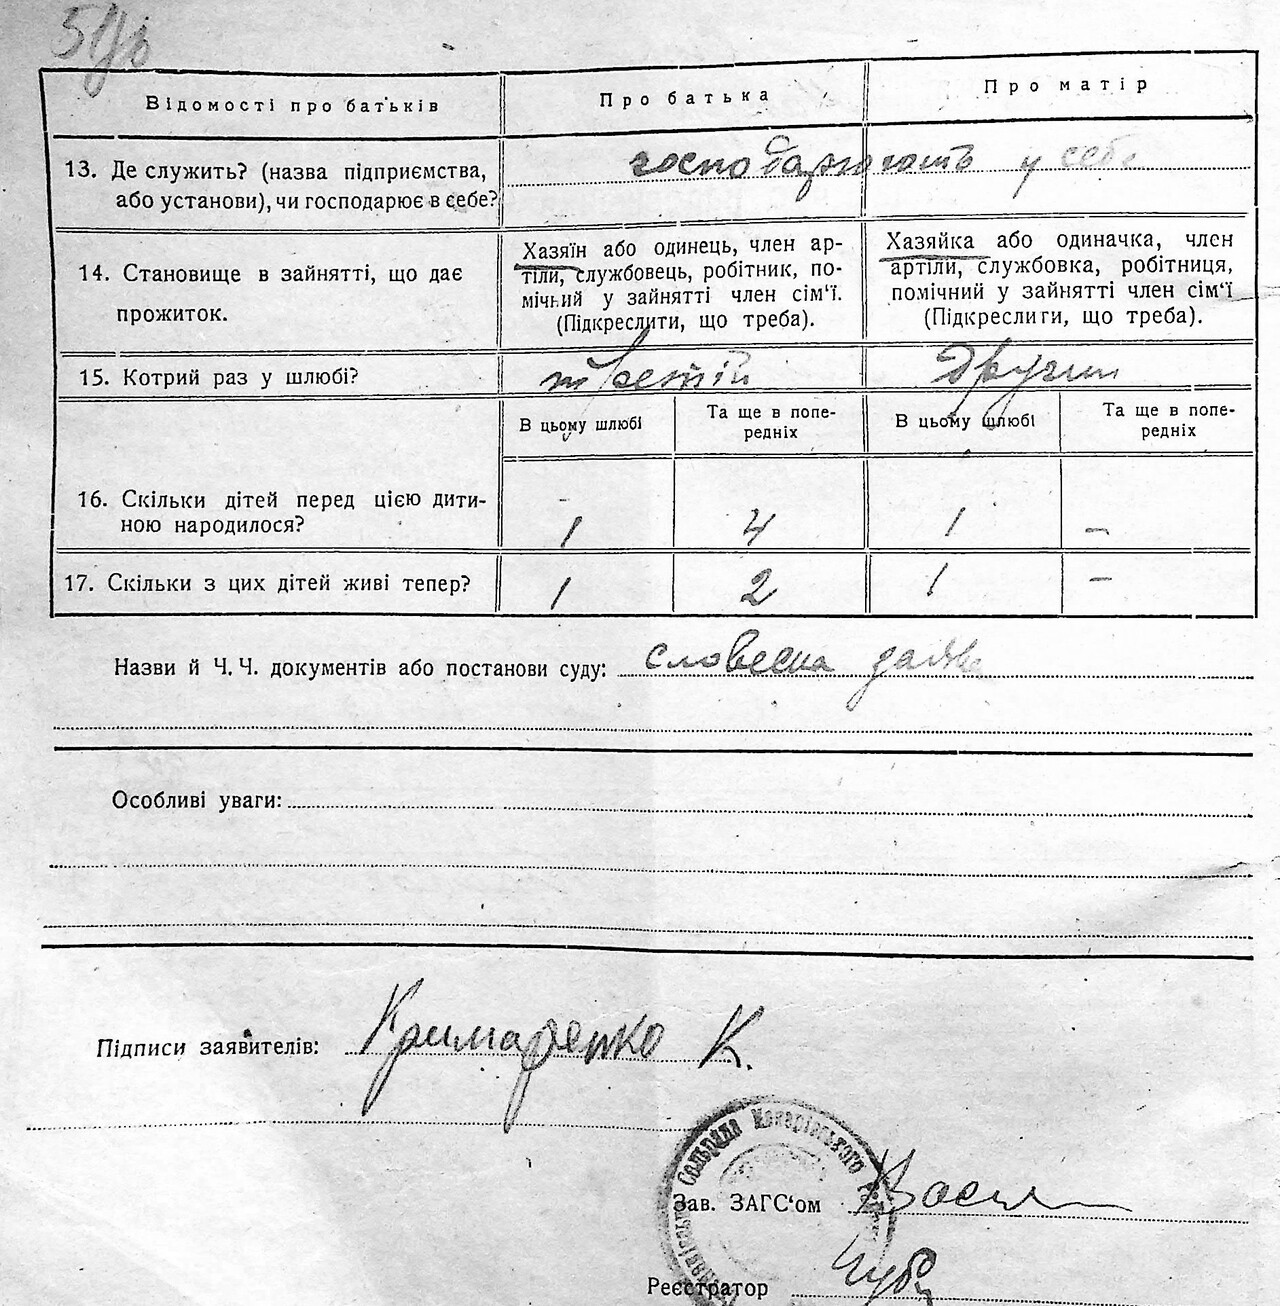 Відомості про батьків
Про батька
Про матір
13. Де служить? (назва підприємства,
або установи), чи господарює в себе?
господарюють у себе
14. Становище в зайнятті, що дає
прожиток.
Хазяїн або одинець, член ар-
тіли, службовець, робітник, по-
мічний у зайнятті член сім‘ї.
(Підкреслити, що треба).
Хазяйка або одиначка, член
артіли, службовка, робітниця,
помічний у зайнятті член сім‘ї
(Підкреслити, що треба).
15. Котрий раз у шлюбі?
третій
другий
В цьому шлюбі
Та ще в попе-
редніх
В цьому шлюбі
Та ще в попе-
редніх
16. Скільки дітей перед цією дити-
ною народилося?
1
4
1
—
17. Скільки з цих дітей живі тепер?
1
2
1
—
Назви й Ч. Ч. документів або постанови суду: словесна
Особливі уваги:
Підписи заявителів: Кримаренко К.
Сельрада Макарівського
Зав. ЗАГС‘ом
Реєстратор